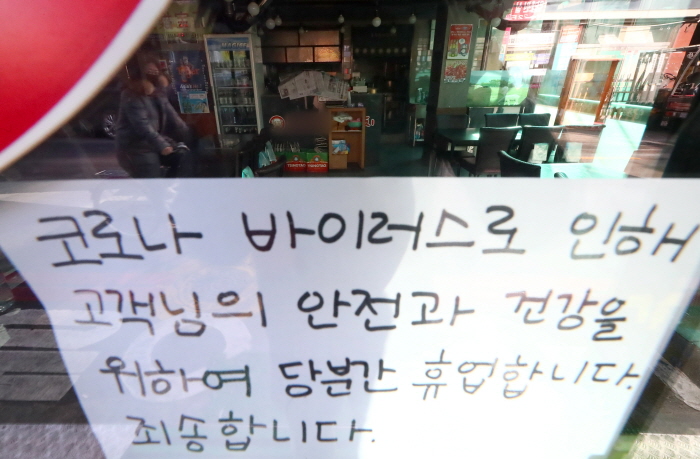 코로나 바이러스로 인해
고객님의 안전과 건강을
위하여 당분간 휴업합니다.
죄송합니다.